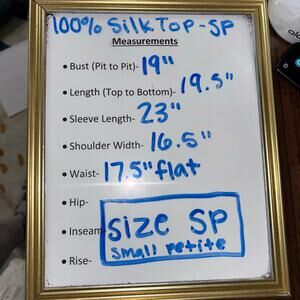 100% Silk Top - SP
Measurements
• Bust (Pit to Pit)- 19"
• Length (Top to Bottom)- 19.5"
• Sleeve Length- 23"
• Shoulder Width- 16.5"
• Waist- 17.5" flat
• Hip-
• Inseam
• Rise-
Size SP
Small Petite